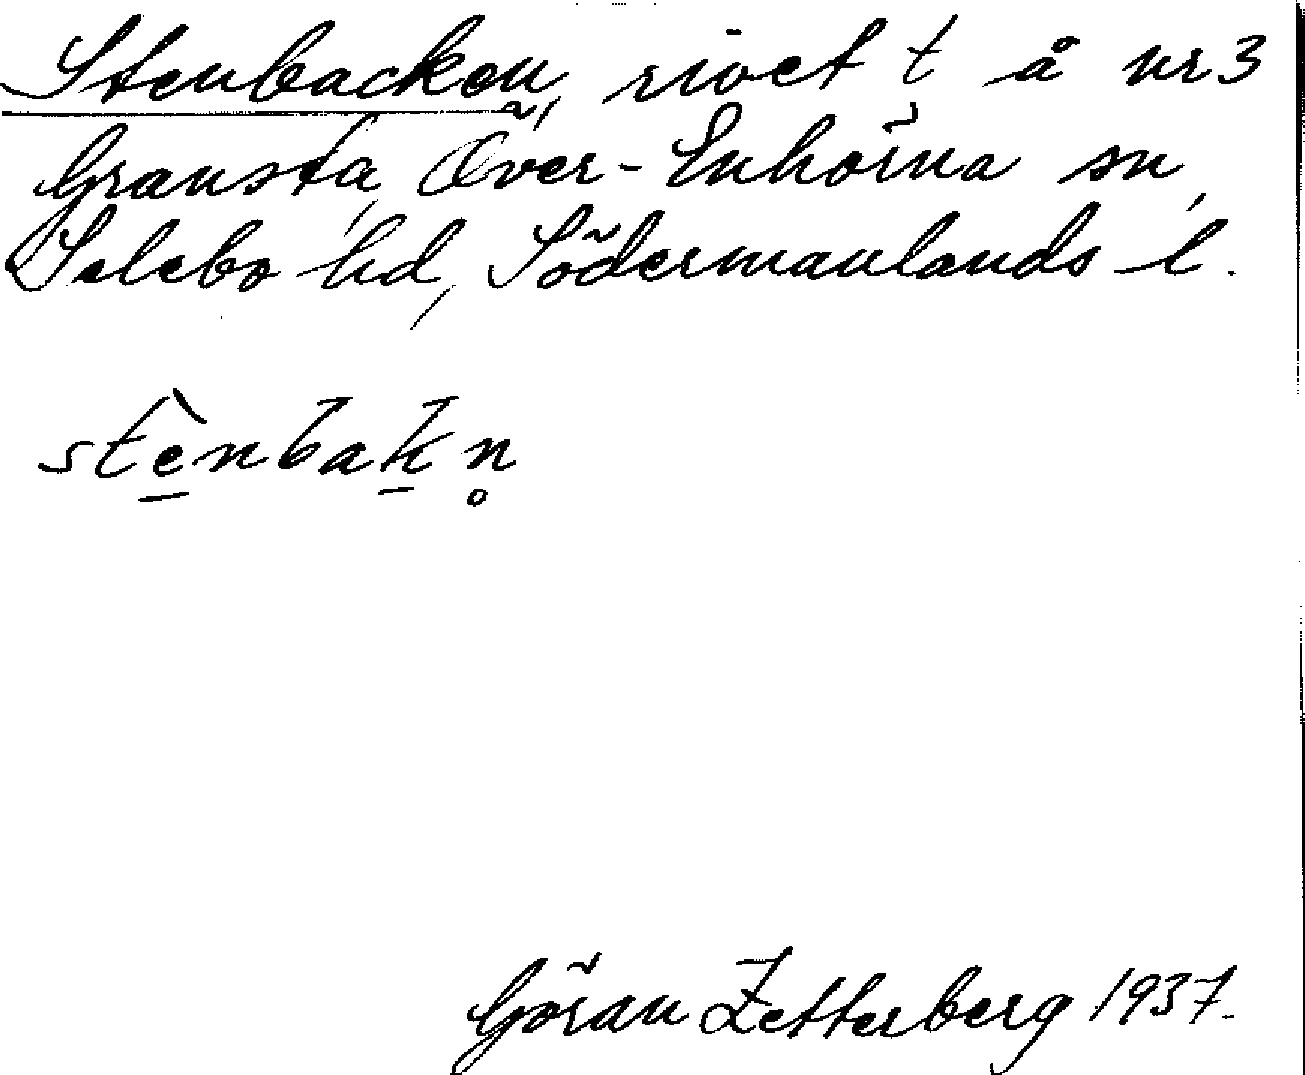 Stenbacken, rivet t å nr 3
Gransta, Över-Enhörna sn,
Selebo hd, Södermanlands l.
stè̱nbaḵn̥
Göran Zetterberg 1937.